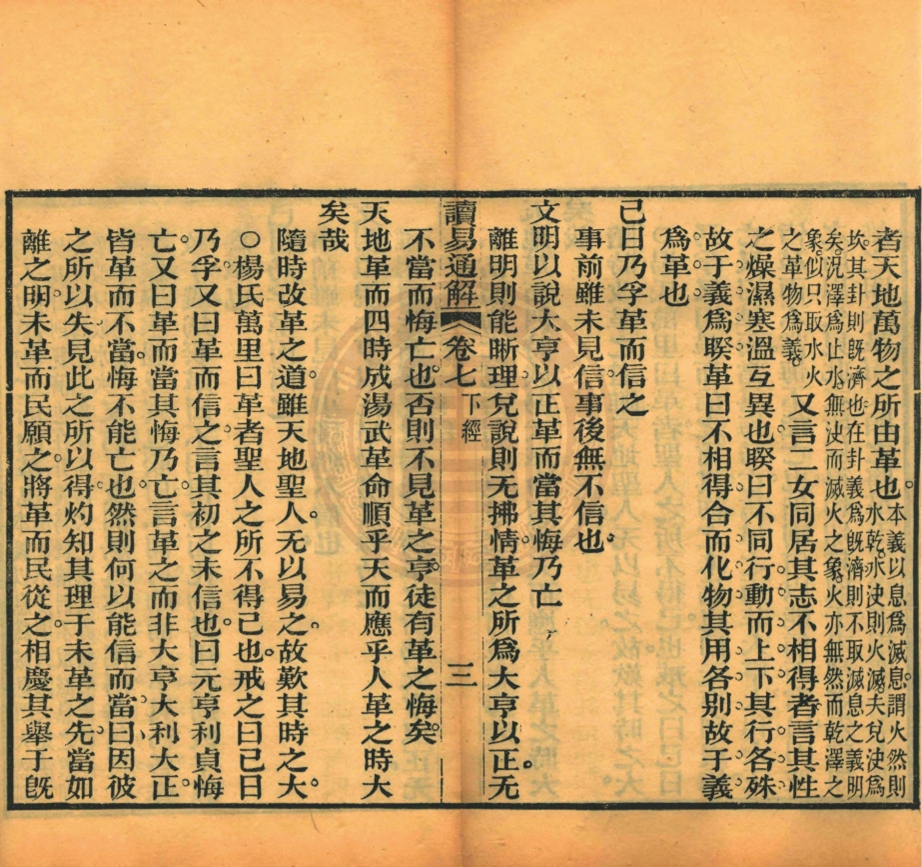 者天地萬物之所由革也。本義以息爲滅息。謂火然則
水乾。水決則火滅。夫兌決爲
坎。其卦則旣濟也。在卦義爲旣濟則不取滅息之義明
矣。況澤爲止水。無決而滅火之象。火亦無然而乾澤之
象。似只取水火
之革物爲義。
又言二女同居其志不相得者。言其性
之燥濕寒溫互異也。睽曰不同行。動而上下其行各殊。
故于義爲睽。革曰不相得。合而化物其用各別。故于義
爲革也
己日乃孚革而信之
事前雖未見信。事後無不信也。
文明以說大亨以正革而當其悔乃亡
離明則能晰理。兌說則无拂情。革之所爲大亨以正。无
讀易通解 卷七 下經 三
不當而悔亡也。否則不見革之亨。徒有革之悔矣。
天地革而四時成湯武革命順乎天而應乎人革之時大
矣哉
隨時改革之道。雖天地聖人。无以易之。故歎其時之大。
○楊氏萬里曰革者聖人之所不得已也。戒之曰已日
乃孚。又曰革而信之。言其初之未信也。曰元亨利貞悔
亡。又曰革而當其悔乃亡。言革之而非大亨大利大正。
皆革而不當。悔不能亡也。然則何以能信而當。曰因彼
之所以失。見此之所以得。灼知其理于未革之先。當如
離之明。未革而民願之。將革而民從之。相慶其舉于旣